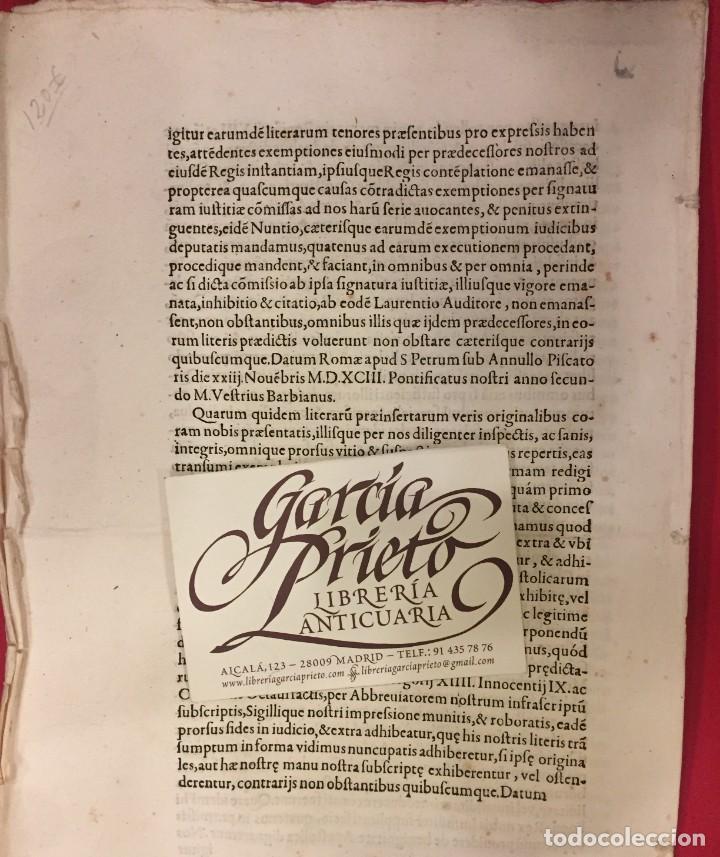 120€
igitur earumdē literarum tenores præsentibus pro expressis haben
tes, attēdentes exemptiones eiusmodi per prædecessores nostros ad
eiusdē Regis instantiam, ipsiusque Regis contēplatione emanasse, &
propterea quascumque causas cōtradictas exemptiones per signatu
ram iustitiæ cōmissas ad nos harū serie auocantes, & penitus extin-
guentes, eidē Nuntio, cæterisque earumdē exemptionum iudicibus
deputatis mandamus, quatenus ad earum executionem procedant,
procedique mandent, & faciant, in omnibus & per omnia, perinde
ac si dicta cōmissio ab ipsa signatura iustitiæ, illiusque vigore ema-
nata, inhibitio & citatio, ab eodē Laurentio Auditore, non emanas-
sent, non obstantibus, omnibus illis quæ ijdem prædecessores, in eo-
rum literis prædictis voluerunt non obstare cæterisque contrarijs
quibuscumque. Datum Romæ apud S Petrum sub Annullo Piscato
ris die xxiij. Nouēbris M.D.XCIII. Pontificatus nostri anno secun-
do M. Vestrius Barbianus.
Quarum quidem literarū præinsertarum veris originalibus co-
ram nobis præsentatis, illisque per nos diligenter inspectis, ac sanis,
integris, omnique prorsus vitio & repertis, eas
transumi redigi
quám primo
& conces
quod
extra & vbi
& adhi-
stolicarum
xhibitę, vel
legitime
rponendū
quód
prędicta-
XIIII. Innocentij IX. ac
per Abbreuiatorem nostrum infrascriptū
subscriptis, Sigillique nostri impressione munitis, & roboratis, eadē
prorsus fides in iudicio, & extra adhibeatur, quę his nostris literis trā
sumptum in forma vidimus nuncupatis adhiberetur, si ipsę origina
les, aut hæ nostrę manu nostra subscriptę exhiberentur, vel osten-
derentur, contrarijs non obstantibus quibuscumque. Datum
García
Prieto
LIBRERÍA
ANTICUARIA
ALCALÁ, 123 – 28009 MADRID – TELF.: 91 435 78 76
www.libreriagarciaprieto.com libreriagarciaprieto@gmail.com
todocoleccion